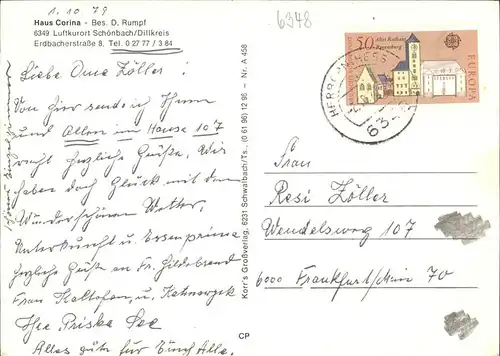 1.10.79
6348
Haus Corina - Bes. D. Rumpf
6349 Luftkurort Schönbach/Dillkreis
Erdbacherstraße 8, Tel. 0 27 77 / 3 84
Liebe Oma Zöller!
Von hier sende ich Ihnen
und Allen im Hause 107
recht herzliche Grüße. Wir
haben doch Glück mit dem
Wunderschönen Wetter,
Unterkunft u. Essen prima
herzliche Grüße an Fr. Hildebrand
Frau
Ihre Priska
Alles gute für Euch Alle.
Korr's Großverlag, 6231 Schwalbach/Ts., (0 61 96) 12 95 - Nr. A 458
CP
50
Altes Rathaus
Regensburg
EUROPA
HERBORN
Frau
Resi Zöller
Wendelsweg 107
6000 Frankfurt/Main 70